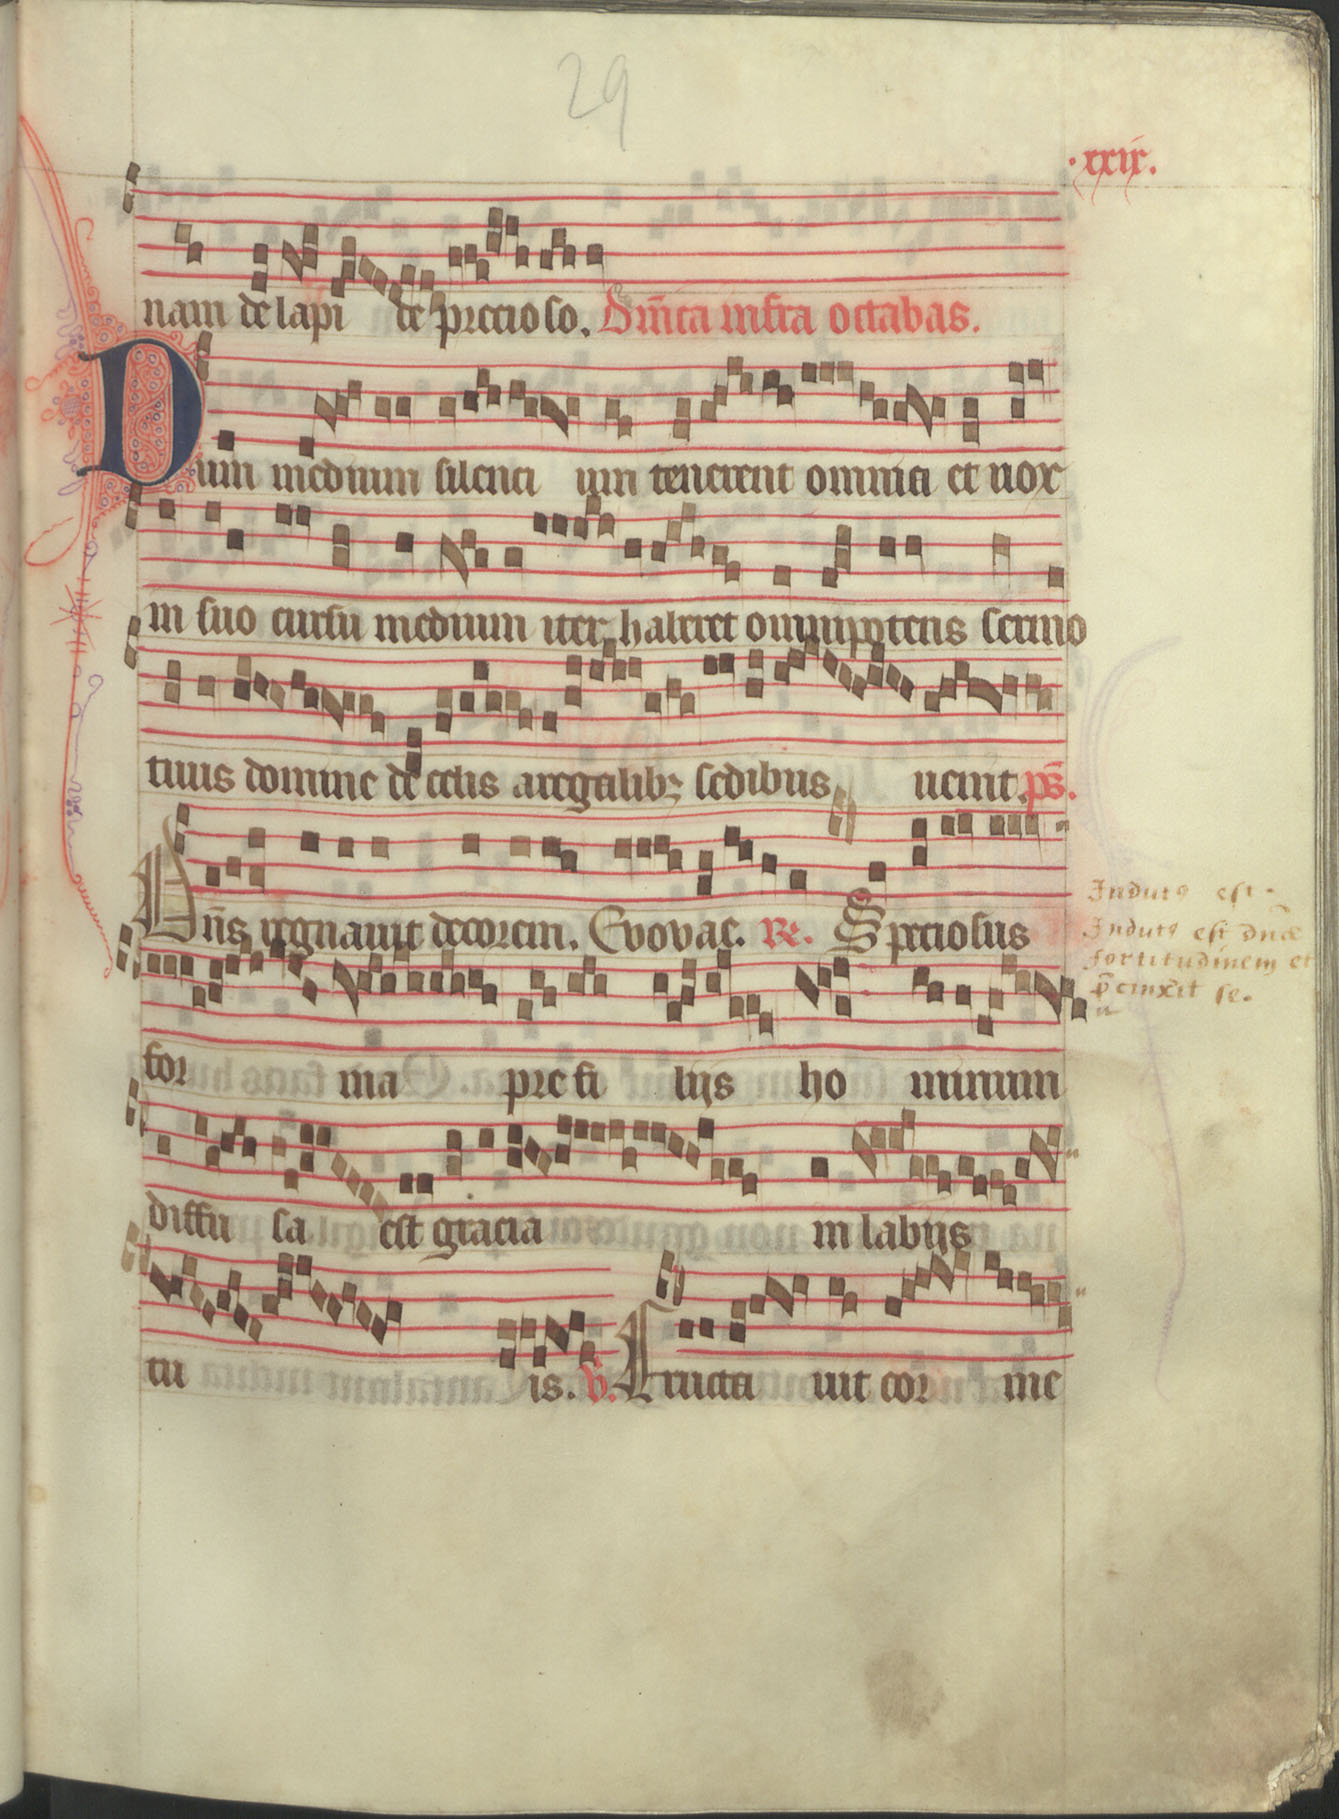 29
·xxix.
nam de lapi de precioso. Dn̄ica infra octabas.
Dum medium silenci um tenerent omnia et nox
in suo cursu medium iter haberet omnipotens sermo
tuus domine de celis aregalibꝫ sedibus uenit. ps̄.
Dn̄s regnauit decorem. Evovae. Re. Speciosus
Indutꝰ est.
Indutꝰ est dn̄s
fortitudinem et
p̄cinxit se.
for ma pre fi lijs ho minum
diffu sa est gracia in labijs
tu is. V. Eructa uit cor me